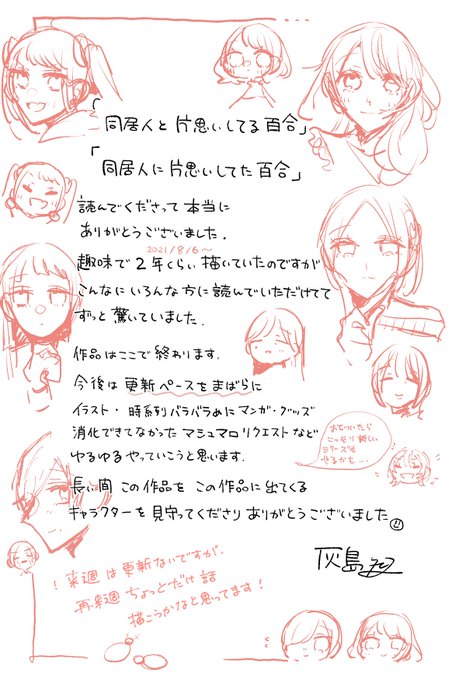 「同居人と片思いしてる百合」
「同居人に片思いしてた百合」
読んでくださって本当に
ありがとうございました.
2021/8/6〜
趣味で2年くらい描いていたのですが
こんなにいろんな方に読んでいただけてて
ずっと驚いていました.
作品はここで終わります.
今後は更新ペースをまばらに
イラスト・時系列バラバラめにマンガ・グッズ
消化できてなかったマシュマロリクエストなど
ゆるゆるやっていこうと思います.
おちついたら
こっそり新しい
シリーズも
やるかも…
長い間この作品をこの作品に出てくる
キャラクターを見守ってくださりありがとうございました
灰島
! 来週は更新ないですが、
再来週ちょっとだけ話
描こうかなと思ってます!